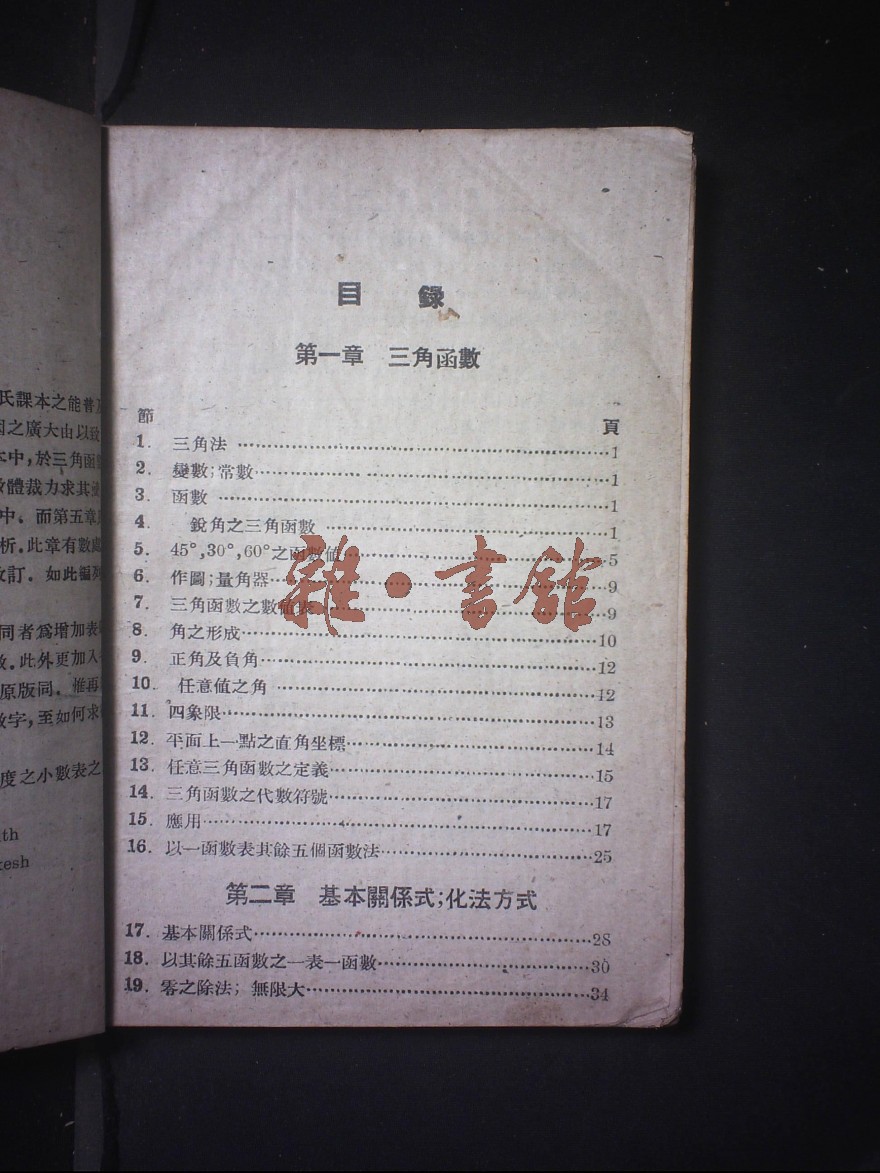 氏課本之能普
國之廣大由以致
本中,於三角函
體裁力求其
中、而第五章
析.此章有數處
改訂.如此編列
同者爲增加表
此外更加入
原版同.惟再
數字,至如何求
度之小數表之
th
esh
目錄
第一章 三角函數
節 頁
1. 三角法 1
2. 變數;常數 1
3. 函數 1
4. 銳角之三角函數 1
5. 45°,30°,60°之函數値 5
6. 作圖;量角器 9
7. 三角函數之數値表 9
8. 角之形成 10
9. 正角及負角 12
10. 任意値之角 12
11. 四象限 13
12. 平面上一點之直角坐標 14
13. 任意三角函數之定義 15
14. 三角函數之代數符號 17
15. 應用 17
16. 以一函數表其餘五個函數法 25
第二章 基本關係式;化法方式
17. 基本關係式 28
18. 以其餘五函數之一表一函數 30
19. 零之除法; 無限大 34
雜·書館